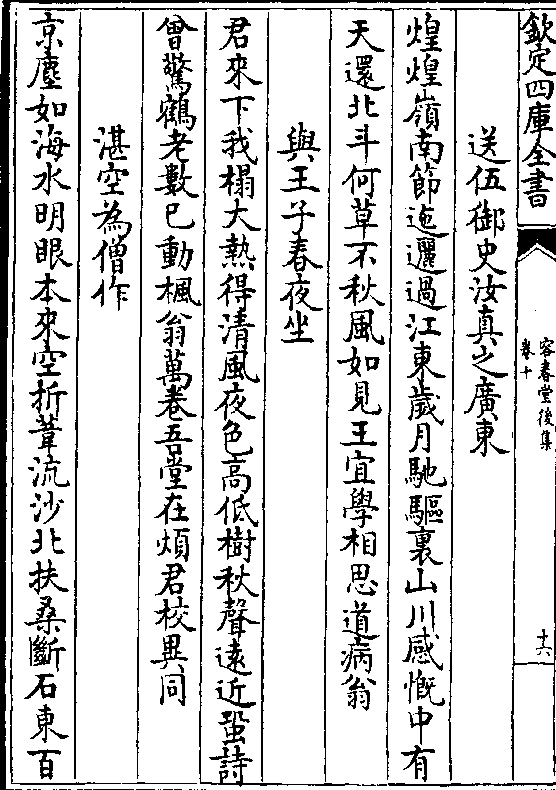 欽定四庫全書
容春堂後集
卷十
十六
送伍御史汝真之廣東
煌煌嶺南節迤邐過江東歲月馳驅裏山川感慨中有
天還北斗何草不秋風如見王宜學相思道病翁
與王子春夜坐
君來下我榻大熱得清風夜色高低樹秋聲遠近蛩詩
曾驚鶴老數已動楓翁萬卷吾堂在煩君校異同
湛空為僧作
京塵如海水明眼本來空折葦流沙北扶桑斷石東百